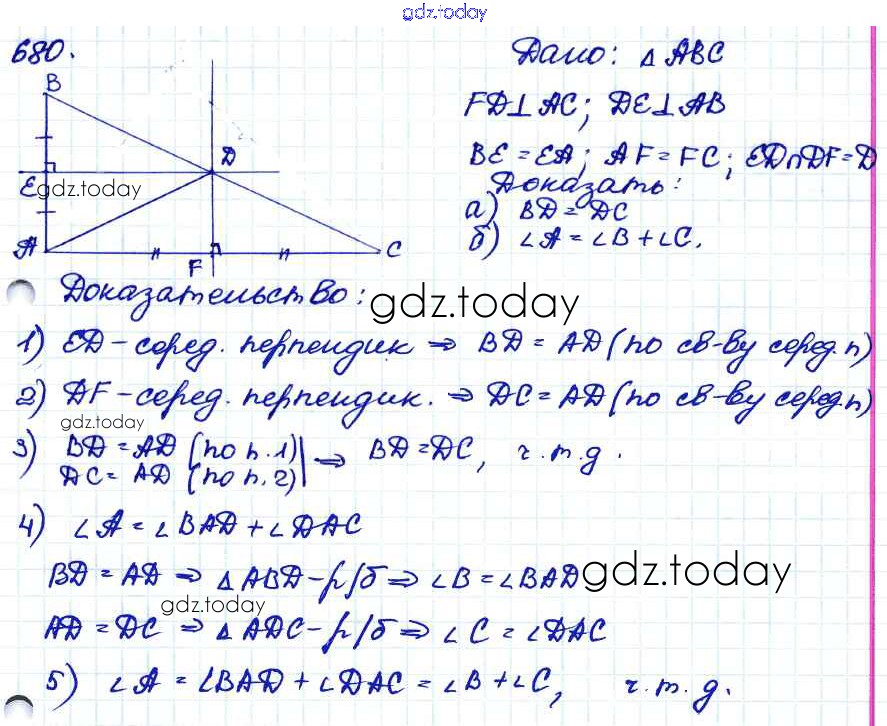 gdz.today
680.
B
D
E
gdz.today
A
F
C
Дано: △ ABC
FD⊥AC; DE⊥AB
BE = EA; AF = FC; ED∩DF=D
Доказать:
а) BD = DC
б) ∠A = ∠B + ∠C.
Доказательство:
gdz.today
1) ED – серед. перпендик ⇒ BD = AD (по св-ву серед.п)
2) DF – серед. перпендик. ⇒ DC = AD (по св-ву серед.п)
gdz.today
3) BD = AD (по п.1) | ⇒ BD = DC, ч.т.д.
DC = AD (по п.2)
4) ∠A = ∠BAD + ∠DAC
BD = AD ⇒ △ABD – р/б ⇒ ∠B = ∠BAD
gdz.today
gdz.today
AD = DC ⇒ △ADC – р/б ⇒ ∠C = ∠DAC
5) ∠A = ∠BAD + ∠DAC = ∠B + ∠C, ч.т.д.